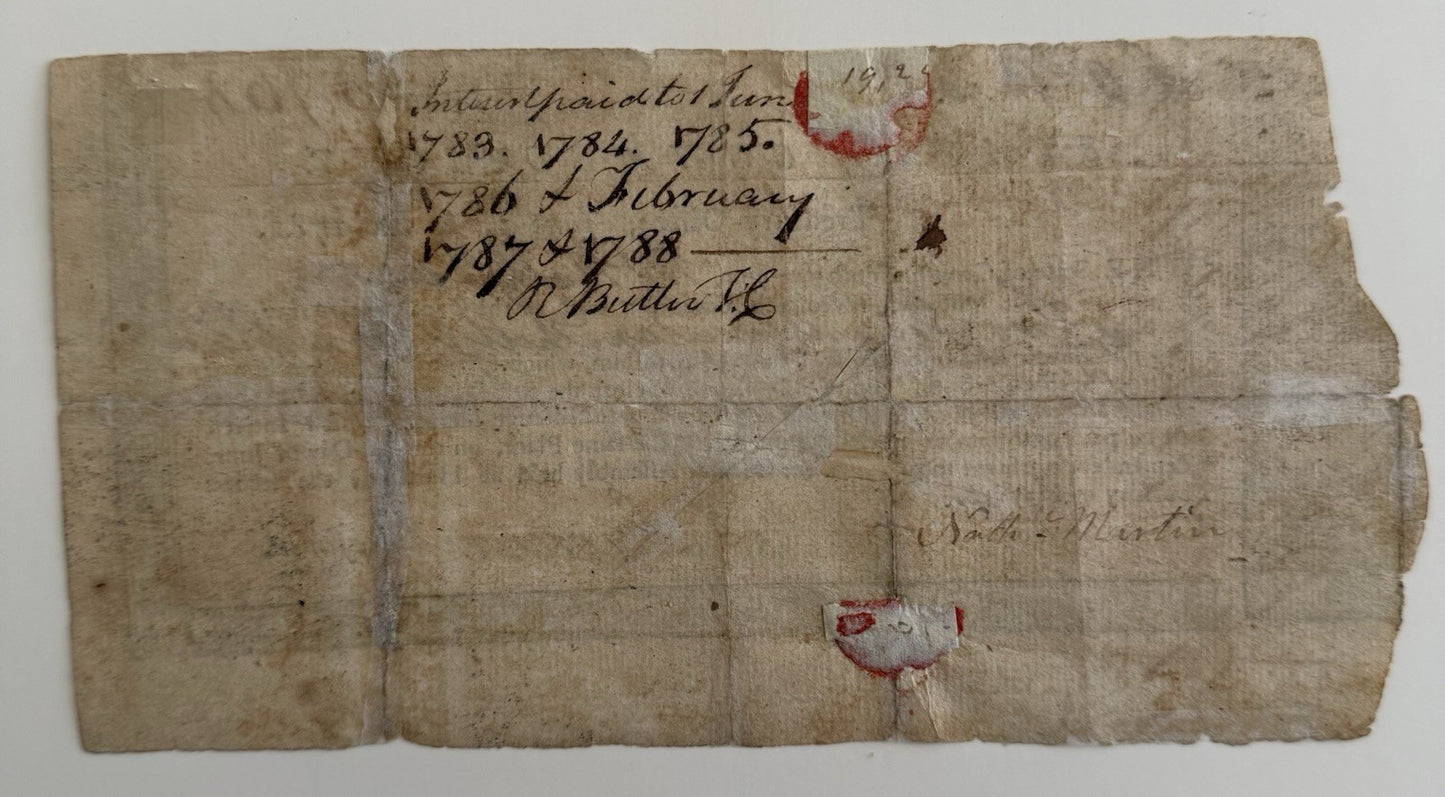 Interest paid to 1 Jun
1783. 1784. 1785.
1786 & February
1787 & 1788
R Butler T.C
19,2
Nath.l Martin